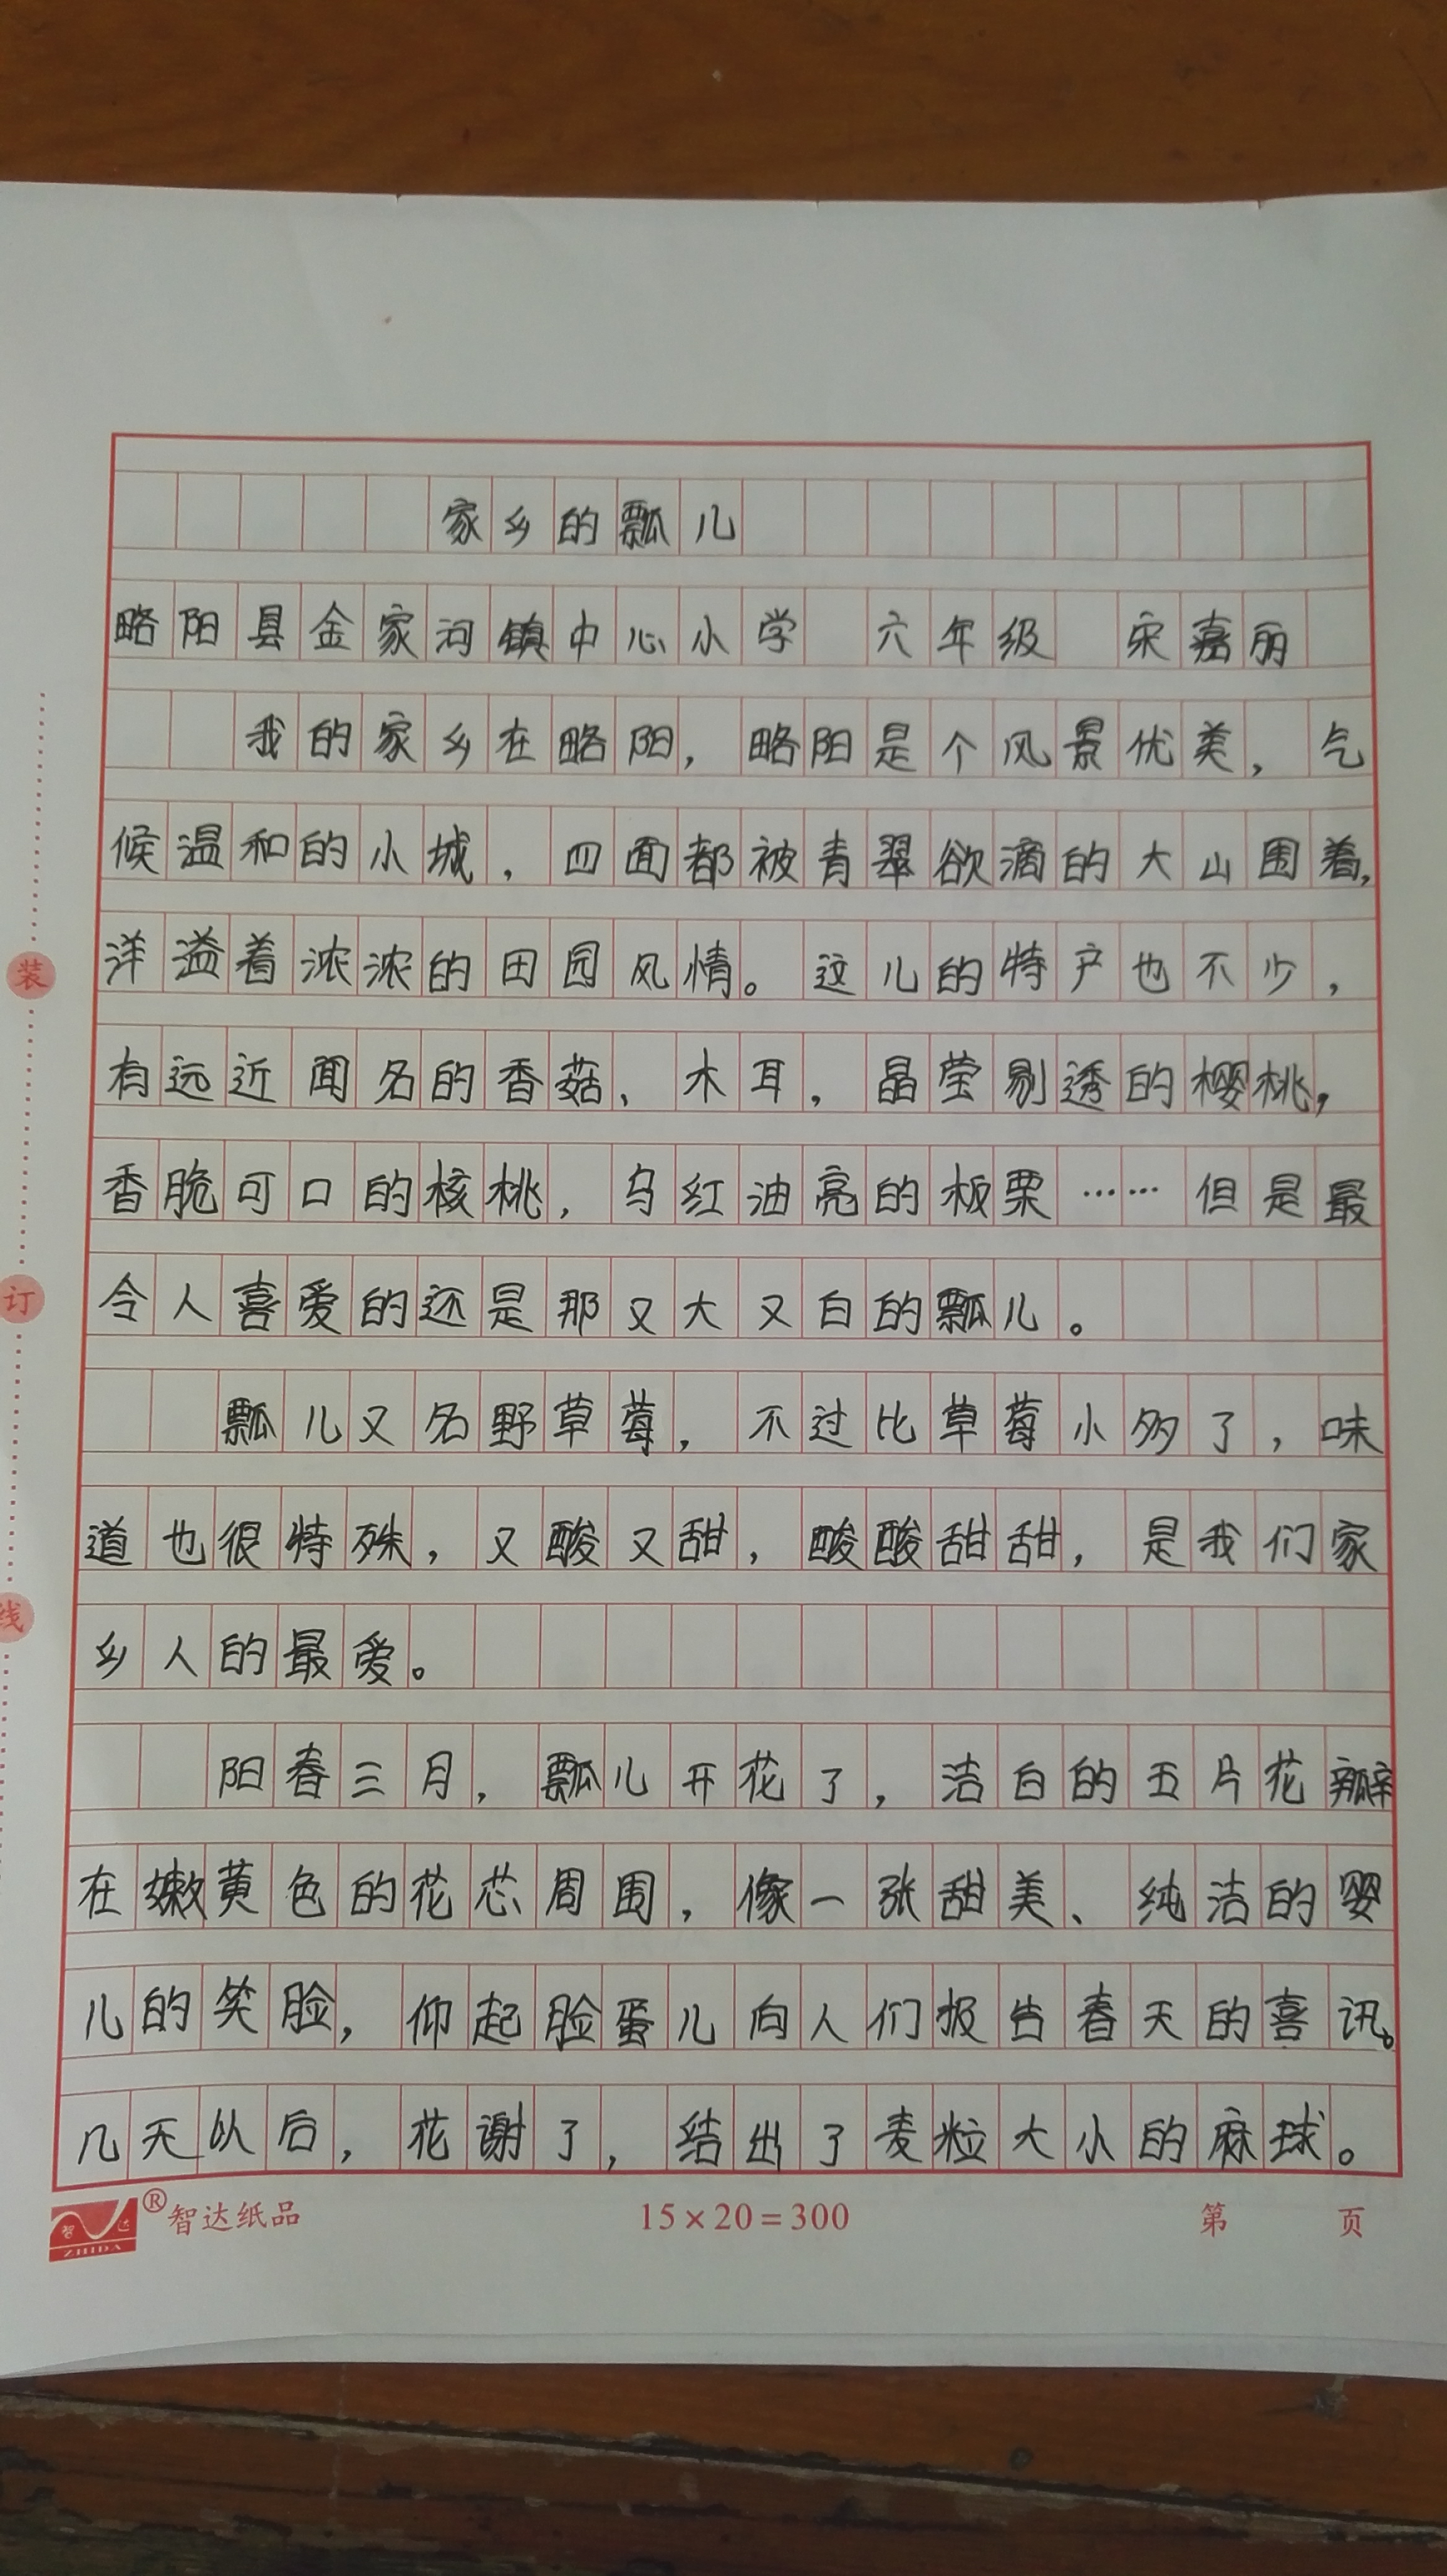 家乡的瓢儿
略阳县金家河镇中心小学 六年级 宋嘉丽
我的家乡在略阳，略阳是个风景优美，气
候温和的小城，四面都被青翠欲滴的大山围着，
洋溢着浓浓的田园风情。这儿的特产也不少，
有远近闻名的香菇、木耳，晶莹剔透的樱桃，
香脆可口的核桃，乌红油亮的板栗……但是最
令人喜爱的还是那又大又白的瓢儿。
瓢儿又名野草莓，不过比草莓小多了，味
道也很特殊，又酸又甜，酸酸甜甜，是我们家
乡人的最爱。
阳春三月，瓢儿开花了，洁白的五片花瓣
在嫩黄色的花芯周围，像一张甜美、纯洁的婴
儿的笑脸，仰起脸蛋儿向人们报告春天的喜讯。
几天以后，花谢了，结出了麦粒大小的麻球。
装
订
线
智达
ZHIDA
®智达纸品
15×20=300
第 页